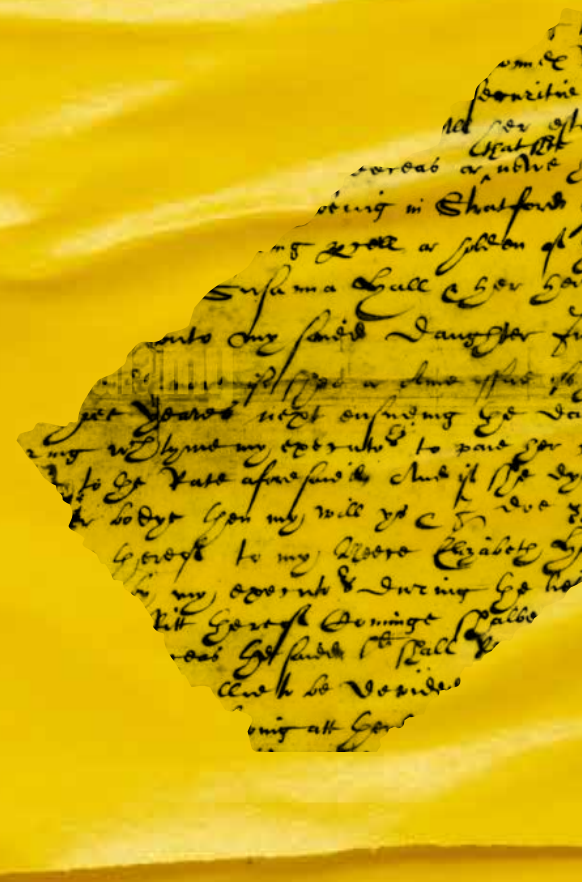 securitie
All her est
that shee
or nowe
being in Stratford
ng pcell or holden of
Susanna Hall & her hei
unto my saied Daughter
if shee or Anie issue of
yeares next ensueing the Da
ing wch tyme my executors to paie her
to the Rate aforesaied And if she Dy
r bodye then my will ys & I Doe
thereof to my Neece Elizabeth H
by my executors during the lie
fitt thereof Cominge shalbe
ceas the saied li shall R
llie to be Devide
ving att the